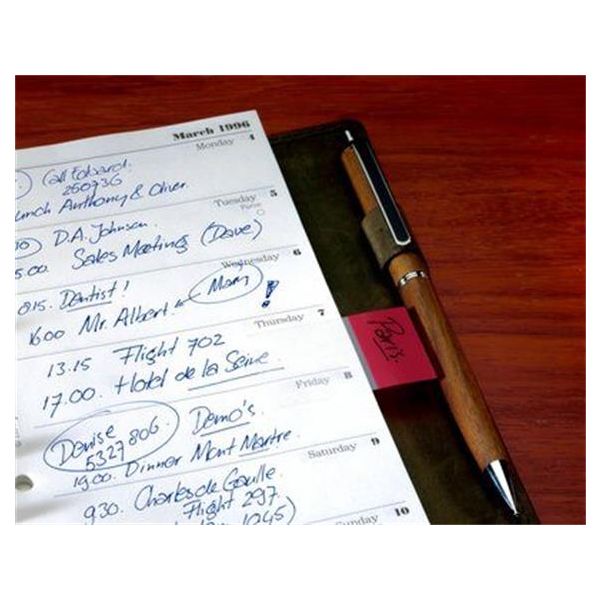 March 1996
Monday 4
Call Edward.
260736
Lunch Anthony & Oliver.
Tuesday 5
D.A. Johnson.
5.00. Sales Meeting (Dave)
Wednesday 6
815. Dentist!
1600 Mr. Albert Mary !
Thursday 7
13.15 Flight 702
17.00. Hotel de la Seine
Friday 8
Denise
5327806 Demo's.
19.00. Dinner Mont Martre.
Saturday 9
9.30. Charles de Gaulle
Flight 297.
1045)
Sunday 10
Paris.